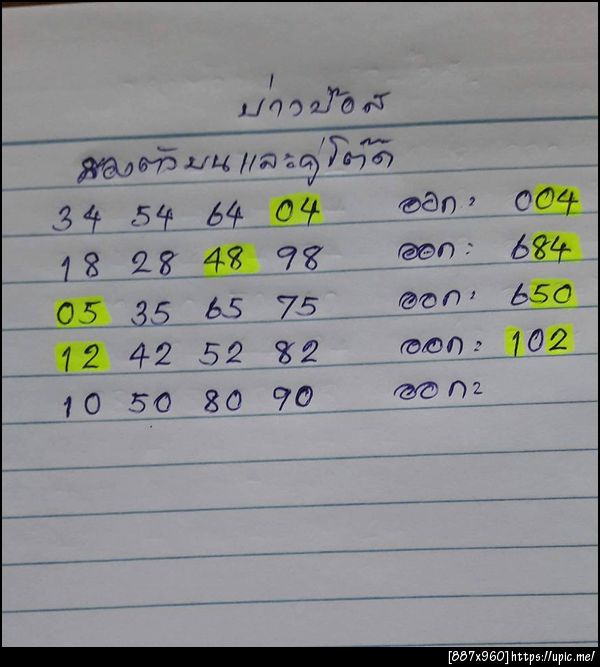 บ่าวป้อส
สองตัวบนและคู่โต๊ด
34 54 64 04 ออก: 004
18 28 48 98 ออก: 684
05 35 65 75 ออก: 650
12 42 52 82 ออก: 102
10 50 80 90 ออก:
[887x960] https://upic.me/